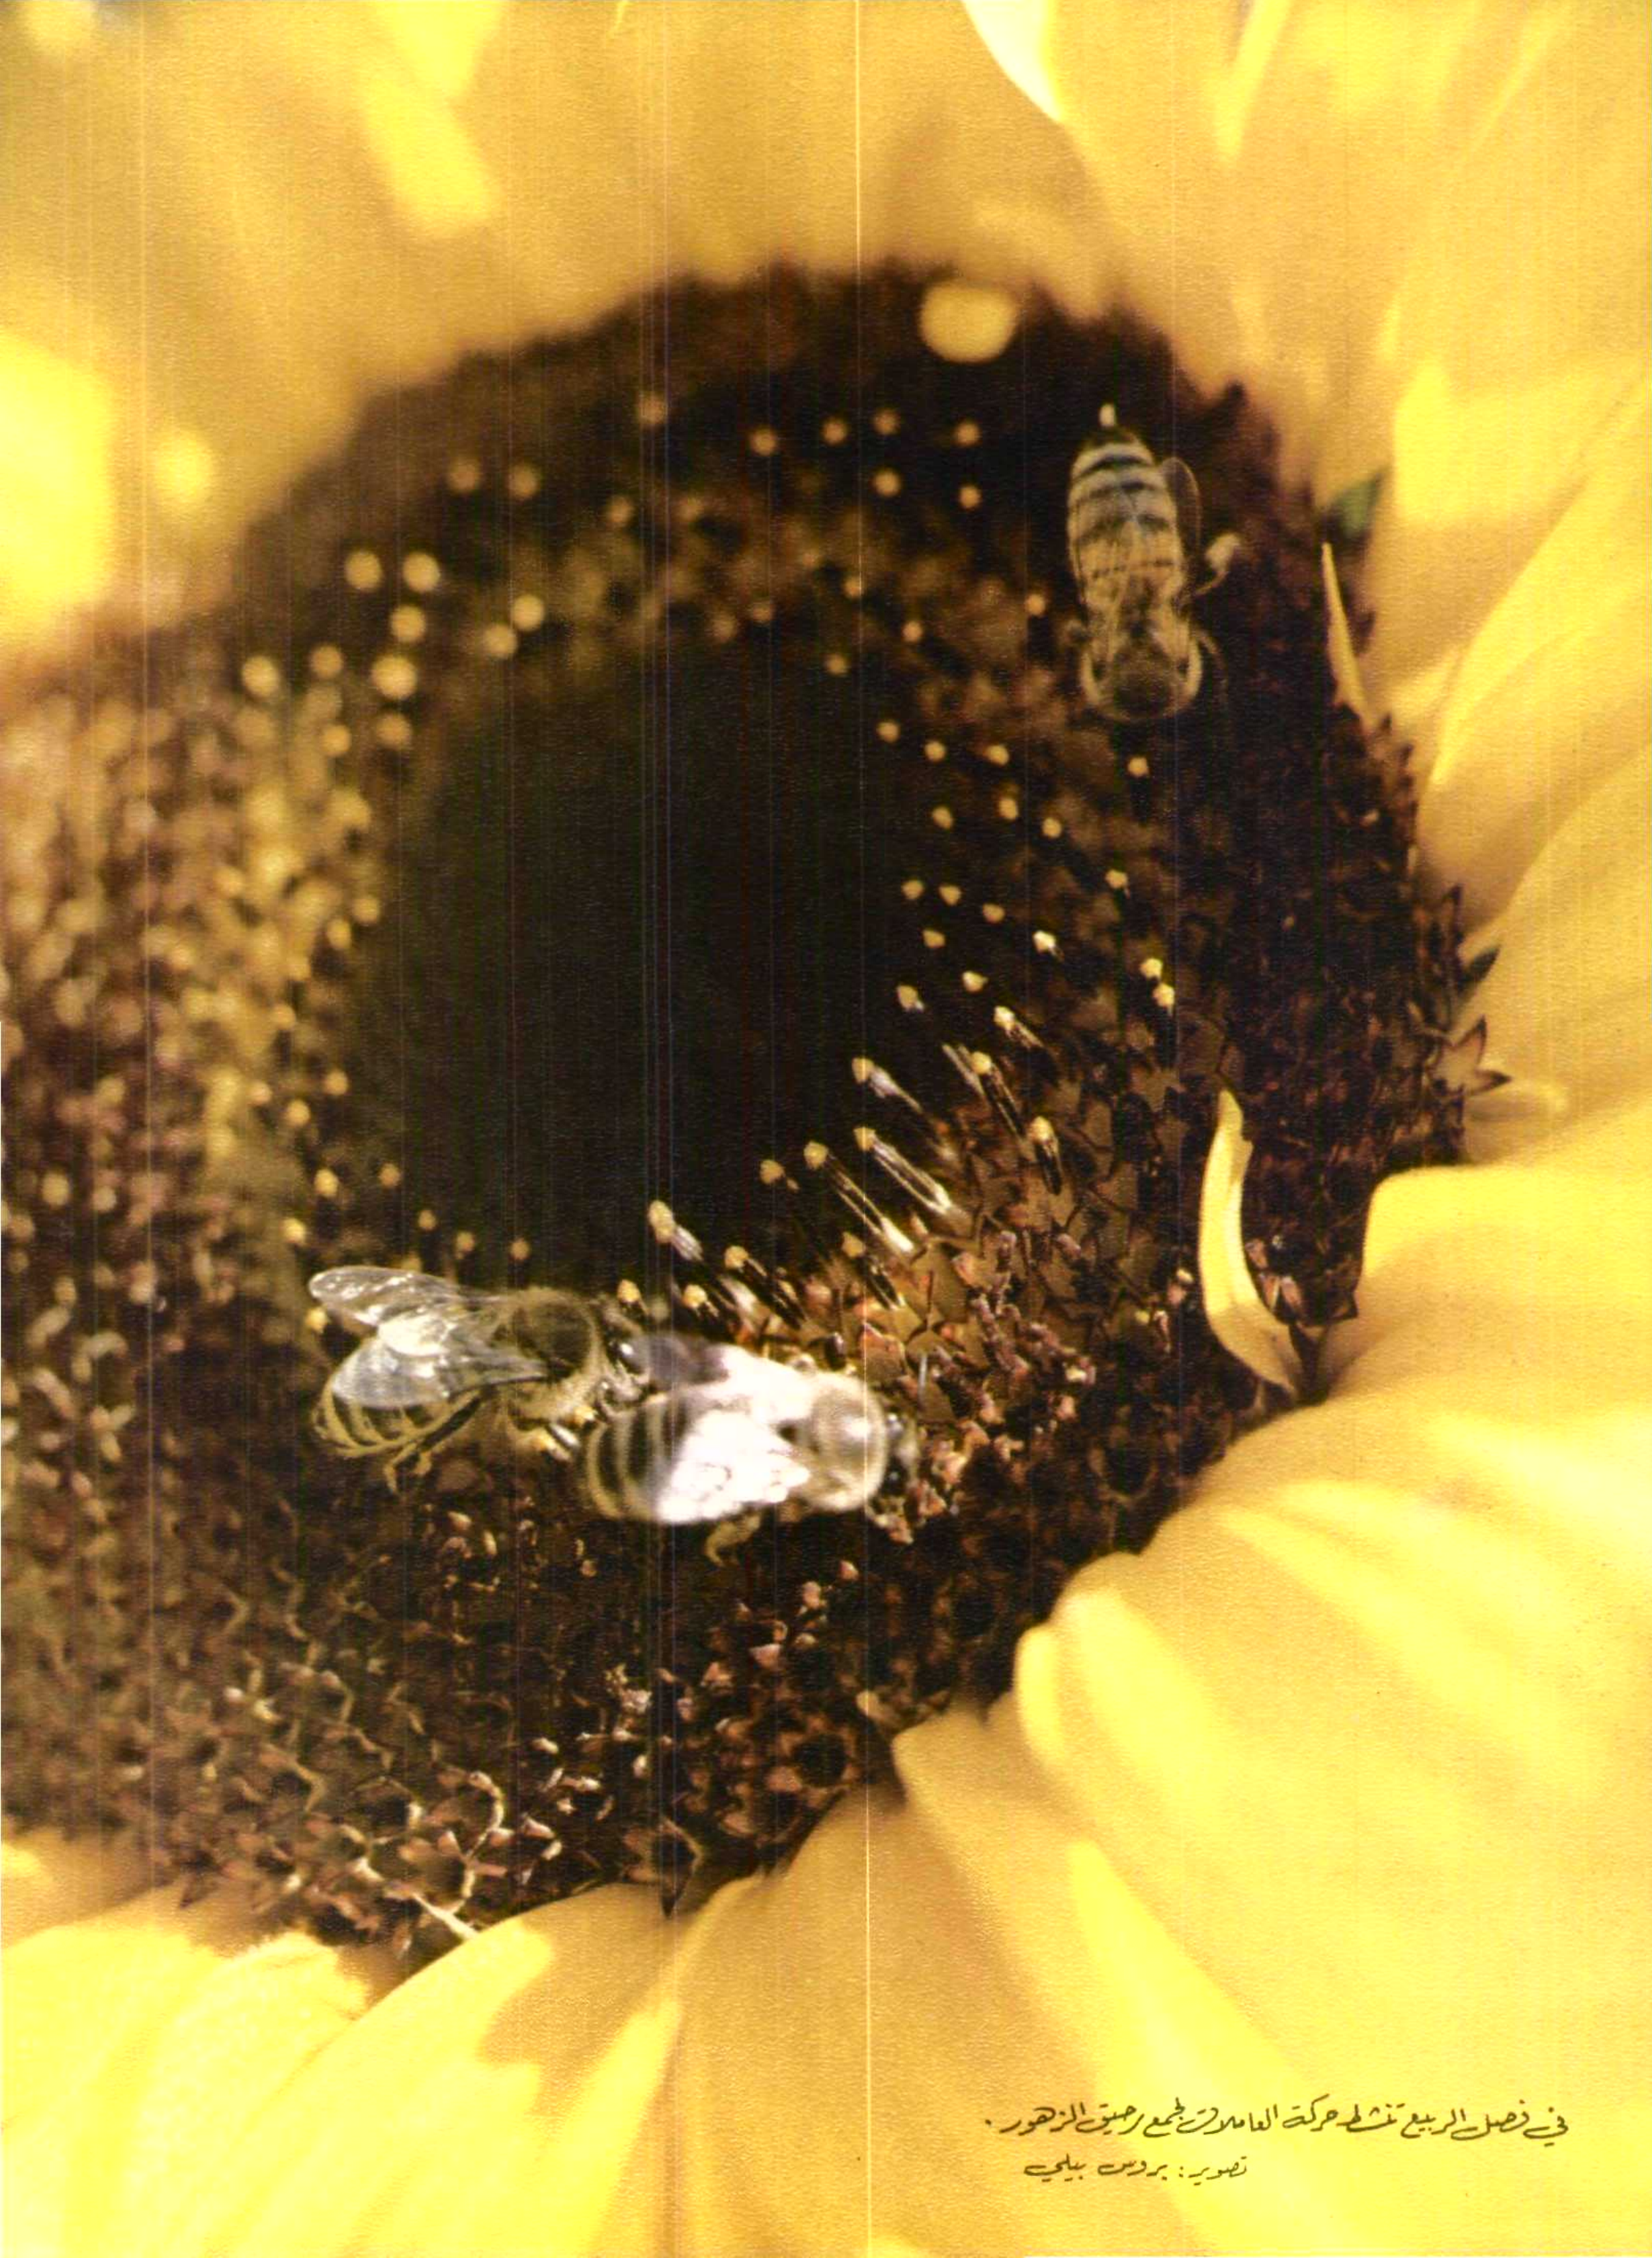 في فصل الربيع تنشط حركة العاملات لجمع رحيق الزهور .
تصوير : بروس بيلي